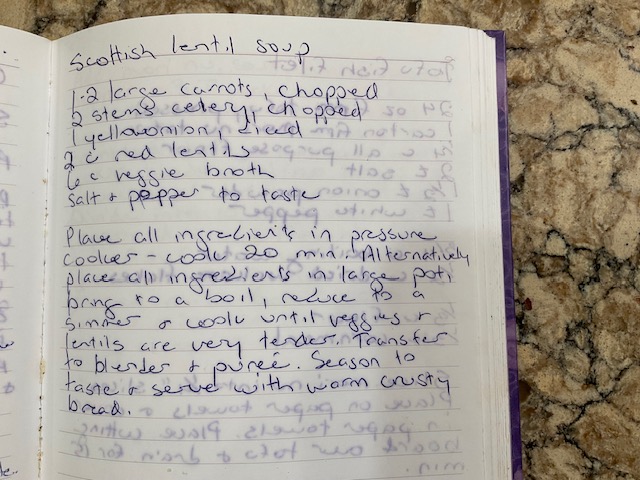 Scottish lentil soup
1-2 large carrots, chopped
2 stems celery, chopped
1 yellow onion, diced
2 c red lentils
6 c veggie broth
Salt & pepper to taste
Place all ingredients in pressure
cooker - cook 20 min. Alternatively
place all ingredients in large pot,
bring to a boil, reduce to a
simmer & cook until veggies &
lentils are very tender. Transfer
to blender & purée. Season to
taste & serve with warm crusty
bread.